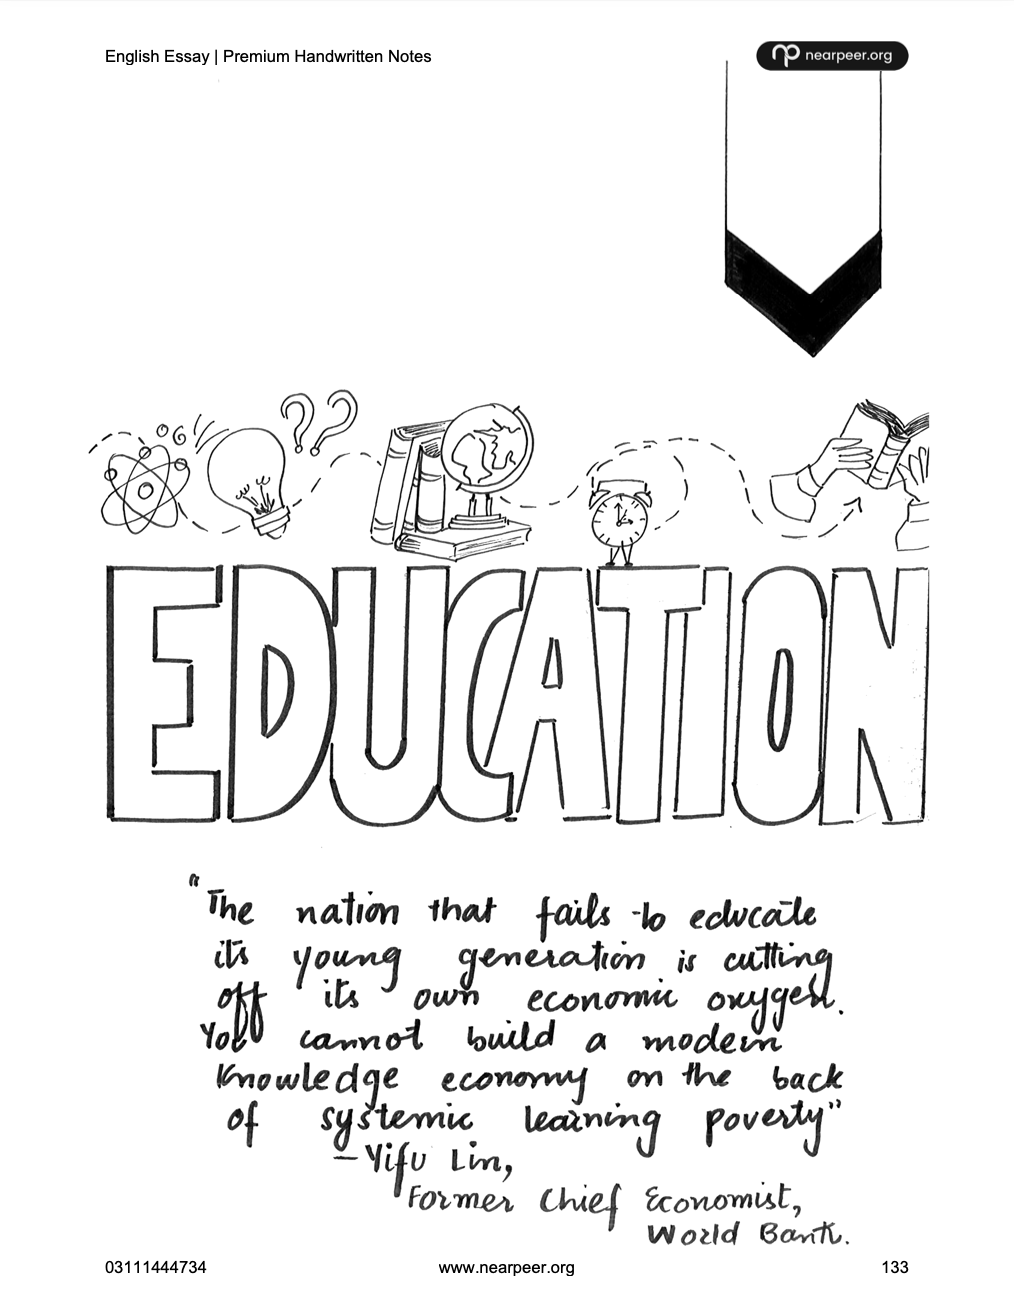 English Essay | Premium Handwritten Notes
nearpeer.org
EDUCATION
"The nation that fails to educate
its young generation is cutting
off its own economic oxygen.
You cannot build a modern
Knowledge economy on the back
of systemic learning poverty"
– Yifu Lin,
Former Chief Economist,
World Bank.
03111444734
www.nearpeer.org
133